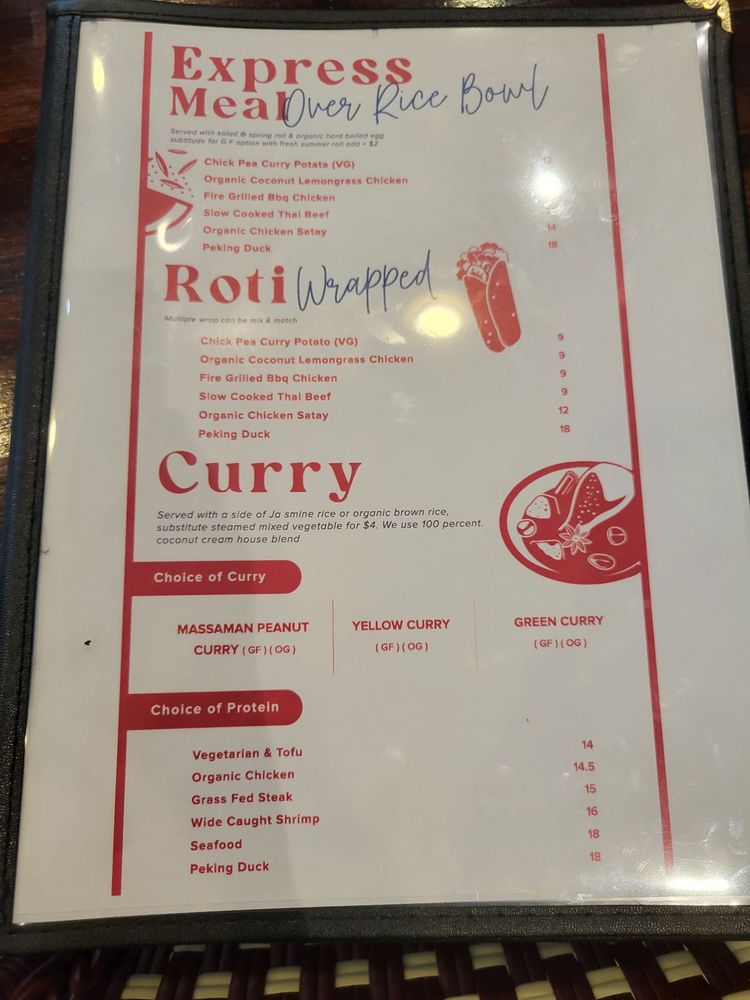 Express
Meal Over Rice Bowl
Served with salad & spring roll & organic hard boiled egg
subtitude for G F option with fresh summer roll add + $2
Chick Pea Curry Potata (VG) 12
Organic Coconut Lemongrass Chicken
Fire Grilled Bbq Chicken
Slow Cooked Thai Beef
Organic Chicken Satay 14
Peking Duck 18
Roti Wrapped
Multiple wrap can be mix & match
Chick Pea Curry Potato (VG) 9
Organic Coconut Lemongrass Chicken 9
Fire Grilled Bbq Chicken 9
Slow Cooked Thai Beef 9
Organic Chicken Satay 12
Peking Duck 18
Curry
Served with a side of Ja smine rice or organic brown rice,
substitute steamed mixed vegetable for $4. We use 100 percent.
coconut cream house blend
Choice of Curry
MASSAMAN PEANUT
CURRY (GF)(OG)
YELLOW CURRY
(GF)(OG)
GREEN CURRY
(GF)(OG)
Choice of Protein
Vegetarian & Tofu 14
Organic Chicken 14.5
Grass Fed Steak 15
Wide Caught Shrimp 16
Seafood 18
Peking Duck 18